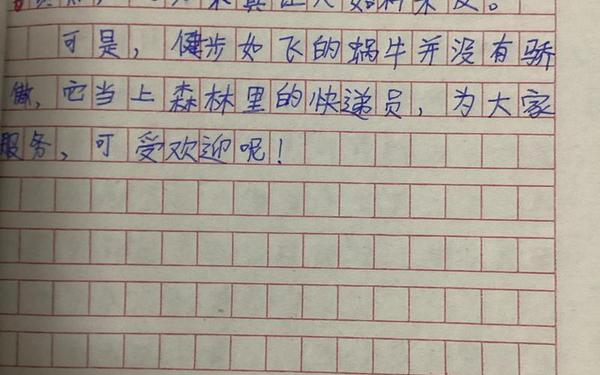 可是，健步如飞的蜗牛并没有骄
傲，它当上森林里的快递员，为大家
服务，可受欢迎呢！